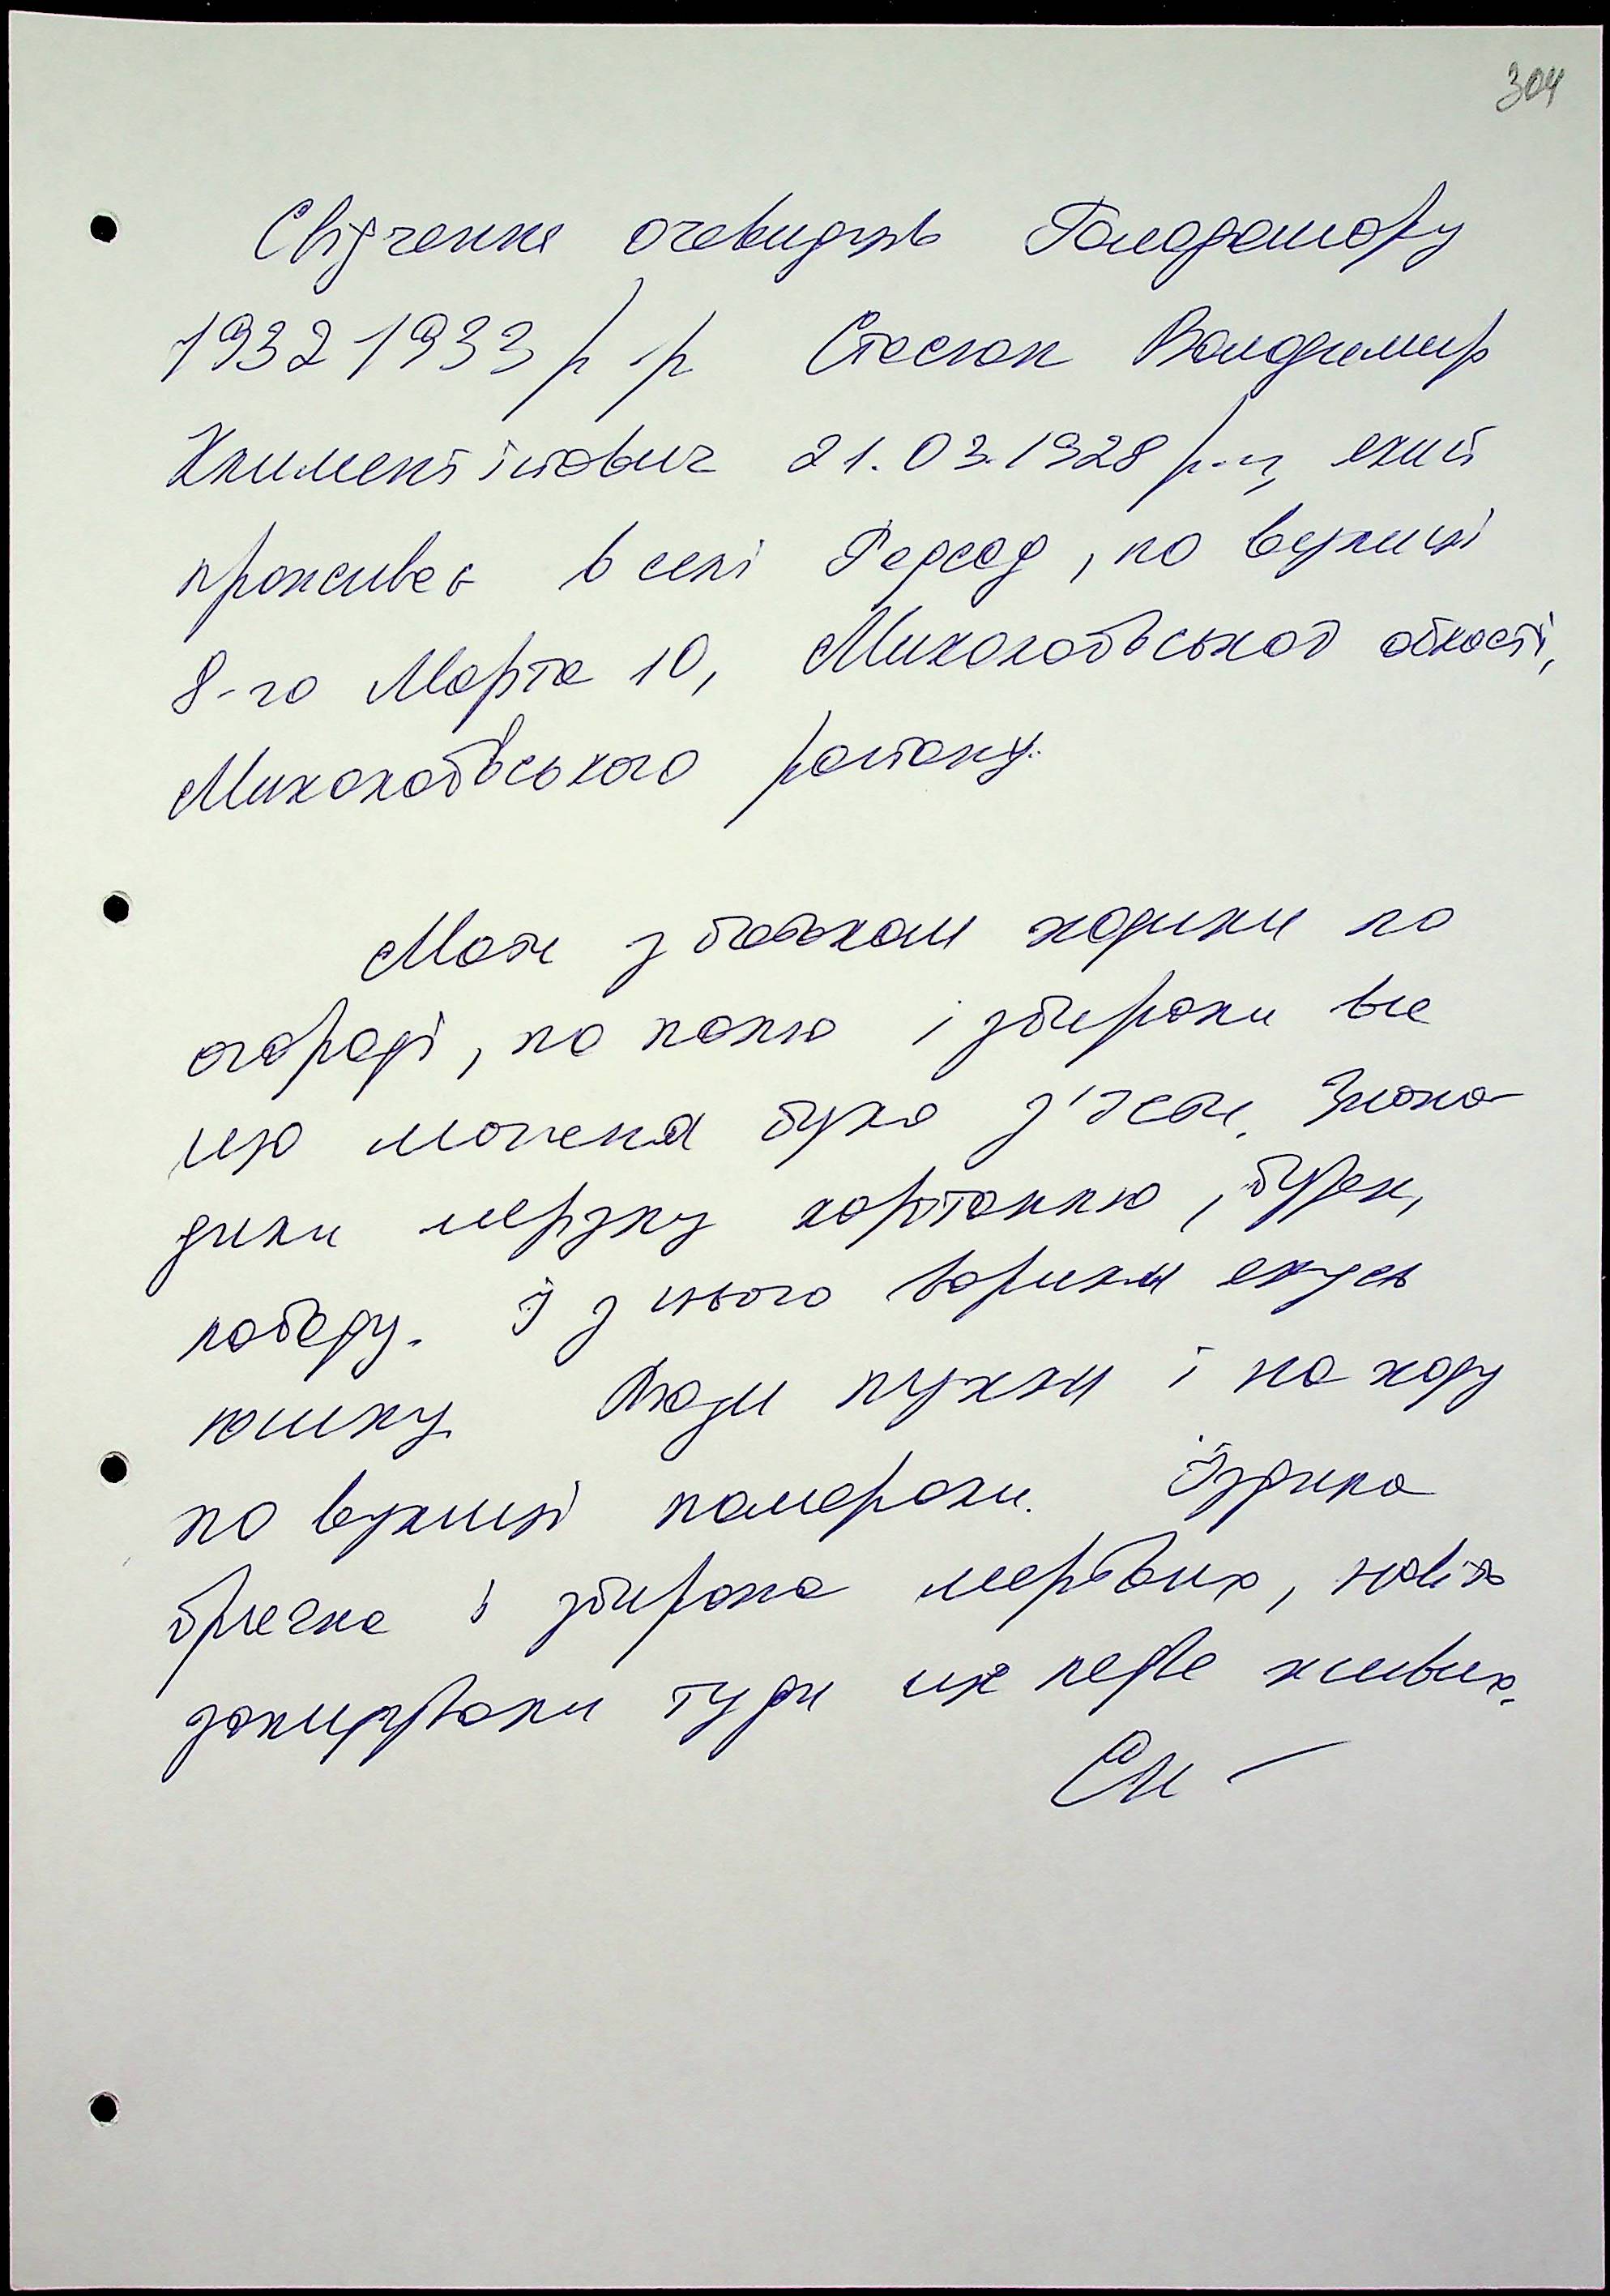 304
Свідчення очевидців Голодомору
1932 1933 р р Стасюк Володимир
Климентійович 21.03.1928 р.н, який
проживає в селі Радсад, по вулиці
8-го Марта 10, Миколаївської області,
Миколаївського району.
Мати з батьком ходили по
огороді, по полю і збирали все
що можна було з'їсти. Знахо-
дили мерзлу картоплю, буряк,
лободу. І з цього варили якусь
юшку. Люди пухли і на ходу
по вулиці помирали. Їздила
бричка і збирала мертвих, навіть
закидували туди ще ледве живих.